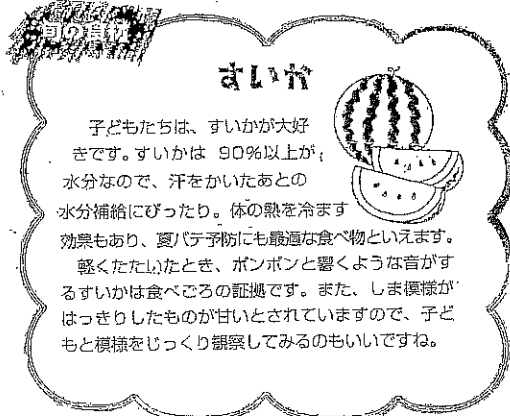 旬の食材
すいか
子どもたちは、すいかが大好
きです。すいかは 90%以上が
水分なので、汗をかいたあとの
水分補給にぴったり。体の熱を冷ます
効果もあり、夏バテ予防にも最適な食べ物といえます。
軽くたたいたとき、ポンポンと響くような音がす
るすいかは食べごろの証拠です。また、しま模様が
はっきりしたものが甘いとされていますので、子ど
もと模様をじっくり観察してみるのもいいですね。